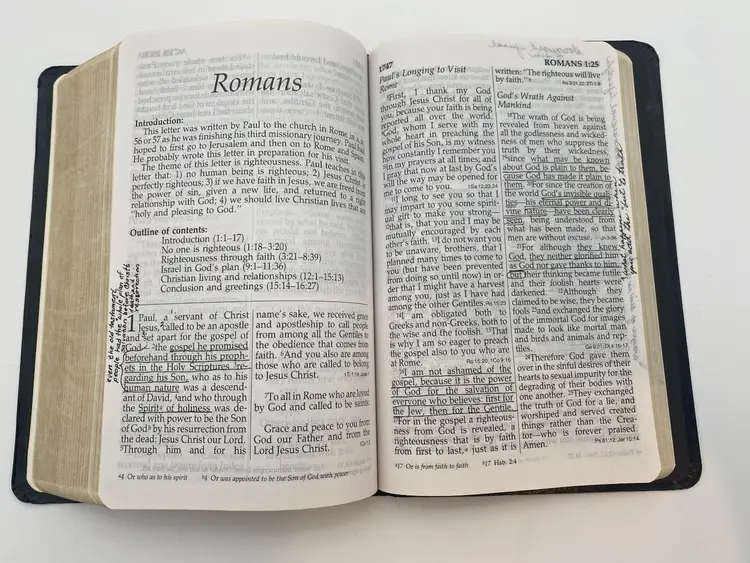 Romans
Introduction:
This letter was written by Paul to the church in Rome in A.D.
56 or 57 as he was finishing his third missionary journey. Paul
hoped to first go to Jerusalem and then on to Rome and Spain.
He probably wrote this letter in preparation for his visit.
The theme of this letter is righteousness. Paul teaches in this
letter that: 1) no human being is righteous; 2) Jesus Christ is
perfectly righteous; 3) if we have faith in Jesus, we are freed from
the power of sin, given a new life, and returned to a right
relationship with God; 4) we should live Christian lives that are
"holy and pleasing to God."
Outline of contents:
Introduction (1:1–17)
No one is righteous (1:18–3:20)
Righteousness through faith (3:21–8:39)
Israel in God's plan (9:1–11:36)
Christian living and relationships (12:1–15:13)
Conclusion and greetings (15:14–16:27)
even the old testament
people had the whole plan of
resurrection
1 Paul, a servant of Christ
Jesus, called to be an apostle
and set apart for the gospel of
God— 2the gospel he promised
beforehand through his proph-
ets in the Holy Scriptures 3re-
garding his Son, who as to his
human nature was a descend-
ant of David, 4and who through
the Spirita of holiness was de-
clared with power to be the Son
of Godb by his resurrection from
the dead: Jesus Christ our Lord.
5Through him and for his
name's sake, we received grace
and apostleship to call people
from among all the Gentiles to
the obedience that comes from
faith. 6And you also are among
those who are called to belong
to Jesus Christ.
7To all in Rome who are loved
by God and called to be saints:
Grace and peace to you from
God our Father and from the
Lord Jesus Christ.
a4 Or who as to his spirit
b4 Or was appointed to be the Son of God with power
1747
ROMANS 1:25
Paul's Longing to Visit
Rome
8First, I thank my God
through Jesus Christ for all of
you, because your faith is being
reported all over the world.
9God, whom I serve with my
whole heart in preaching the
gospel of his Son, is my witness
how constantly I remember you
10in my prayers at all times; and
I pray that now at last by God's
will the way may be opened for
me to come to you.
11I long to see you so that I
may impart to you some spirit-
ual gift to make you strong—
12that is, that you and I may be
mutually encouraged by each
other's faith. 13I do not want you
to be unaware, brothers, that I
planned many times to come to
you (but have been prevented
from doing so until now) in or-
der that I might have a harvest
among you, just as I have had
among the other Gentiles.
14I am obligated both to
Greeks and non-Greeks, both to
the wise and the foolish. 15That
is why I am so eager to preach
the gospel also to you who are
at Rome.
16I am not ashamed of the
gospel, because it is the power
of God for the salvation of
everyone who believes: first for
the Jew, then for the Gentile.
17For in the gospel a righteous-
ness from God is revealed, a
righteousness that is by faith
from first to last,a just as it is
written: "The righteous will live
by faith."b
God's Wrath Against
Mankind
18The wrath of God is being
revealed from heaven against
all the godlessness and wicked-
ness of men who suppress the
truth by their wickedness,
19since what may be known
about God is plain to them, be-
cause God has made it plain to
them. 20For since the creation of
the world God's invisible quali-
ties—his eternal power and di-
vine nature—have been clearly
seen, being understood from
what has been made, so that
men are without excuse.
21For although they knew
God, they neither glorified him
as God nor gave thanks to him,
but their thinking became futile
and their foolish hearts were
darkened. 22Although they
claimed to be wise, they became
fools 23and exchanged the glory
of the immortal God for images
made to look like mortal man
and birds and animals and rep-
tiles.
24Therefore God gave them
over in the sinful desires of their
hearts to sexual impurity for the
degrading of their bodies with
one another. 25They exchanged
the truth of God for a lie, and
worshiped and served created
things rather than the Crea-
tor—who is forever praised.
Amen.
a17 Or is from faith to faith
b17 Hab. 2:4